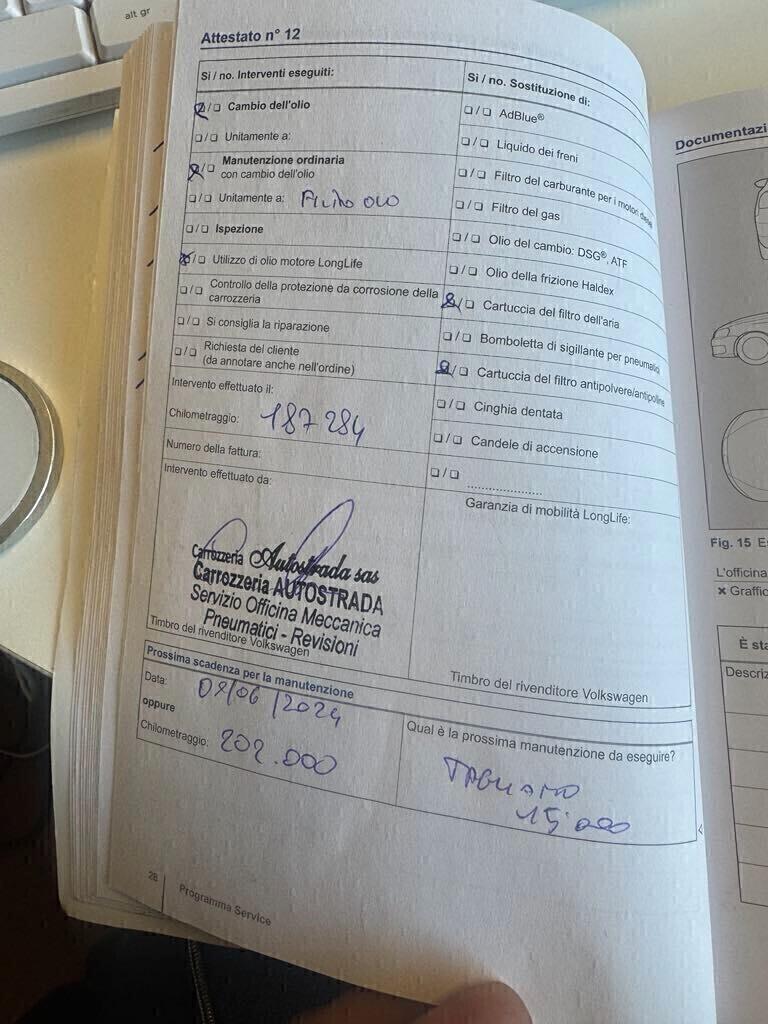 alt gr
Attestato n° 12
Si / no. Interventi eseguiti:
Si / no. Sostituzione di:
☒/☐ Cambio dell'olio
☐/☐ Unitamente a:
☒/☐ Manutenzione ordinaria
con cambio dell'olio
☐/☐ Unitamente a: Filtro olio
☐/☐ Ispezione
☒/☐ Utilizzo di olio motore LongLife
☐/☐ Controllo della protezione da corrosione della
carrozzeria
☐/☐ Si consiglia la riparazione
☐/☐ Richiesta del cliente
(da annotare anche nell'ordine)
☐/☐ AdBlue®
☐/☐ Liquido dei freni
☐/☐ Filtro del carburante per i motori diesel
☐/☐ Filtro del gas
☐/☐ Olio del cambio: DSG®, ATF
☐/☐ Olio della frizione Haldex
☒/☐ Cartuccia del filtro dell'aria
☐/☐ Bomboletta di sigillante per pneumatici
☒/☐ Cartuccia del filtro antipolvere/antipolline
☐/☐ Cinghia dentata
☐/☐ Candele di accensione
☐/☐ ......................
Intervento effettuato il:
Chilometraggio: 187 284
Numero della fattura:
Intervento effettuato da:
Carrozzeria Autostrada sas
Carrozzeria AUTOSTRADA
Servizio Officina Meccanica
Pneumatici - Revisioni
Timbro del rivenditore Volkswagen
Garanzia di mobilità LongLife:
Timbro del rivenditore Volkswagen
Prossima scadenza per la manutenzione
Data: /06/2024
oppure
Chilometraggio: 202.000
Qual è la prossima manutenzione da eseguire?
TAGLIANDO
15.000
28
Programma Service
Documentazi
Fig. 15 Es
L'officina
× Grafic
È sta
Descriz